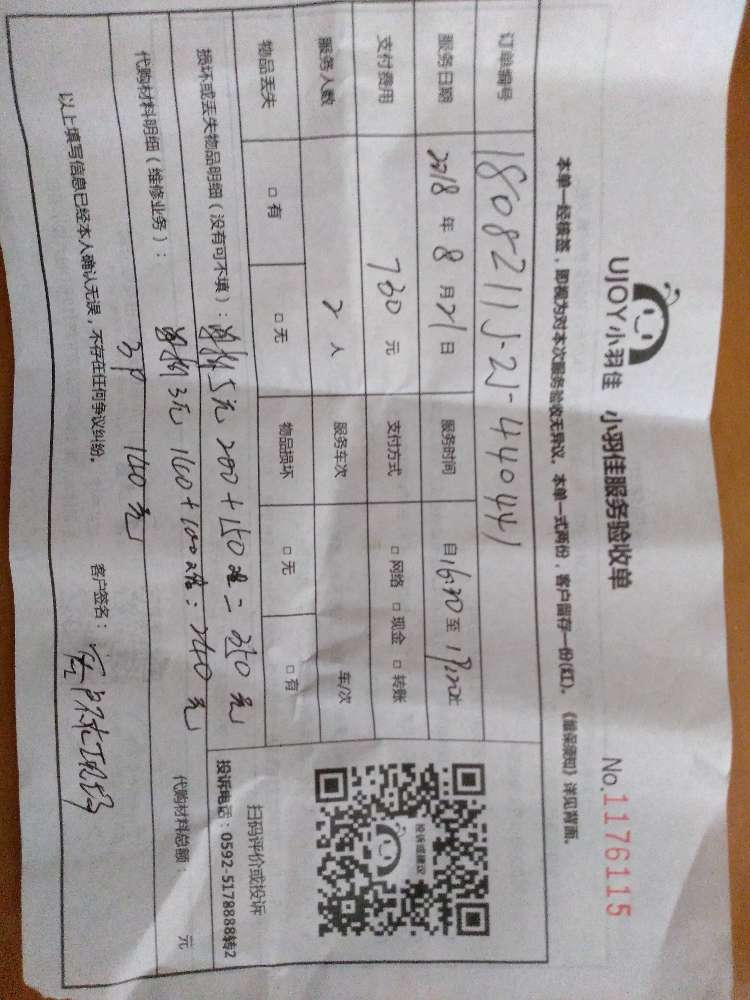 UJOY小羽佳 小羽佳服务验收单
No.1176115
本单一经核签，即视为对本次服务验收无异议。本单一式两份，客户留存一份(红)。《维保须知》详见背面。
订单编号 18082115-25-440441
服务日期 2018年8月21日 服务时间 自16:30至
支付费用 730元 支付方式 □网络 □现金 □转账
服务人数 2人 服务车次 车/次
物品丢失 □有 □无 物品损坏 □无 □有
损坏或丢失物品明细（没有可不填）： 5元 200+150 = 350元
3元 140+100 : 240元
代购材料明细（维修业务）： 3P 140元
代购材料总额： 元
以上填写信息已经本人确认无误，不存在任何争议纠纷。
客户签名：
投诉或建议
扫码评价或投诉
投诉电话：0592-5178888转2